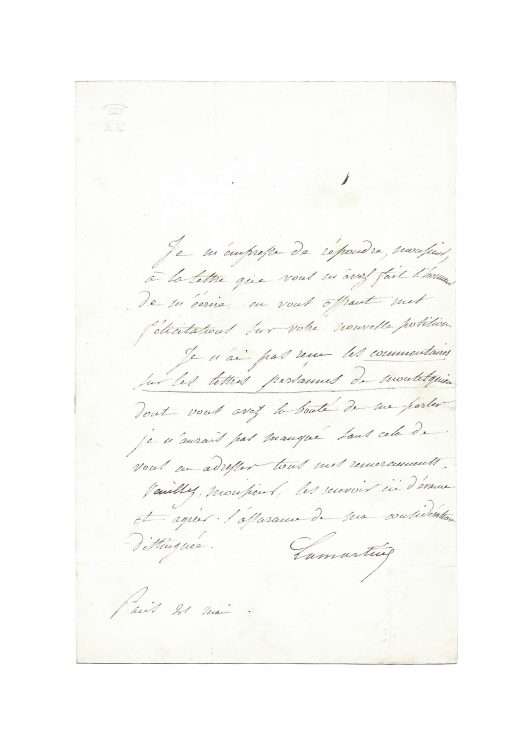 Je m'empresse de répondre, monsieur,
à la lettre que vous m'avez fait l'honneur
de m'écrire en vous offrant mes
félicitations sur votre nouvelle position
Je n'ai pas reçu les commentaires
sur les lettres persannes de montesquieu
dont vous avez la bonté de me parler
je n'aurais pas manqué sans cela de
vous en adresser tous mes remerciements.
Veuillez, monsieur, les recevoir ici d'avance
et agréer l'assurance de ma considération
distinguée.
Lamartine
Paris mai.